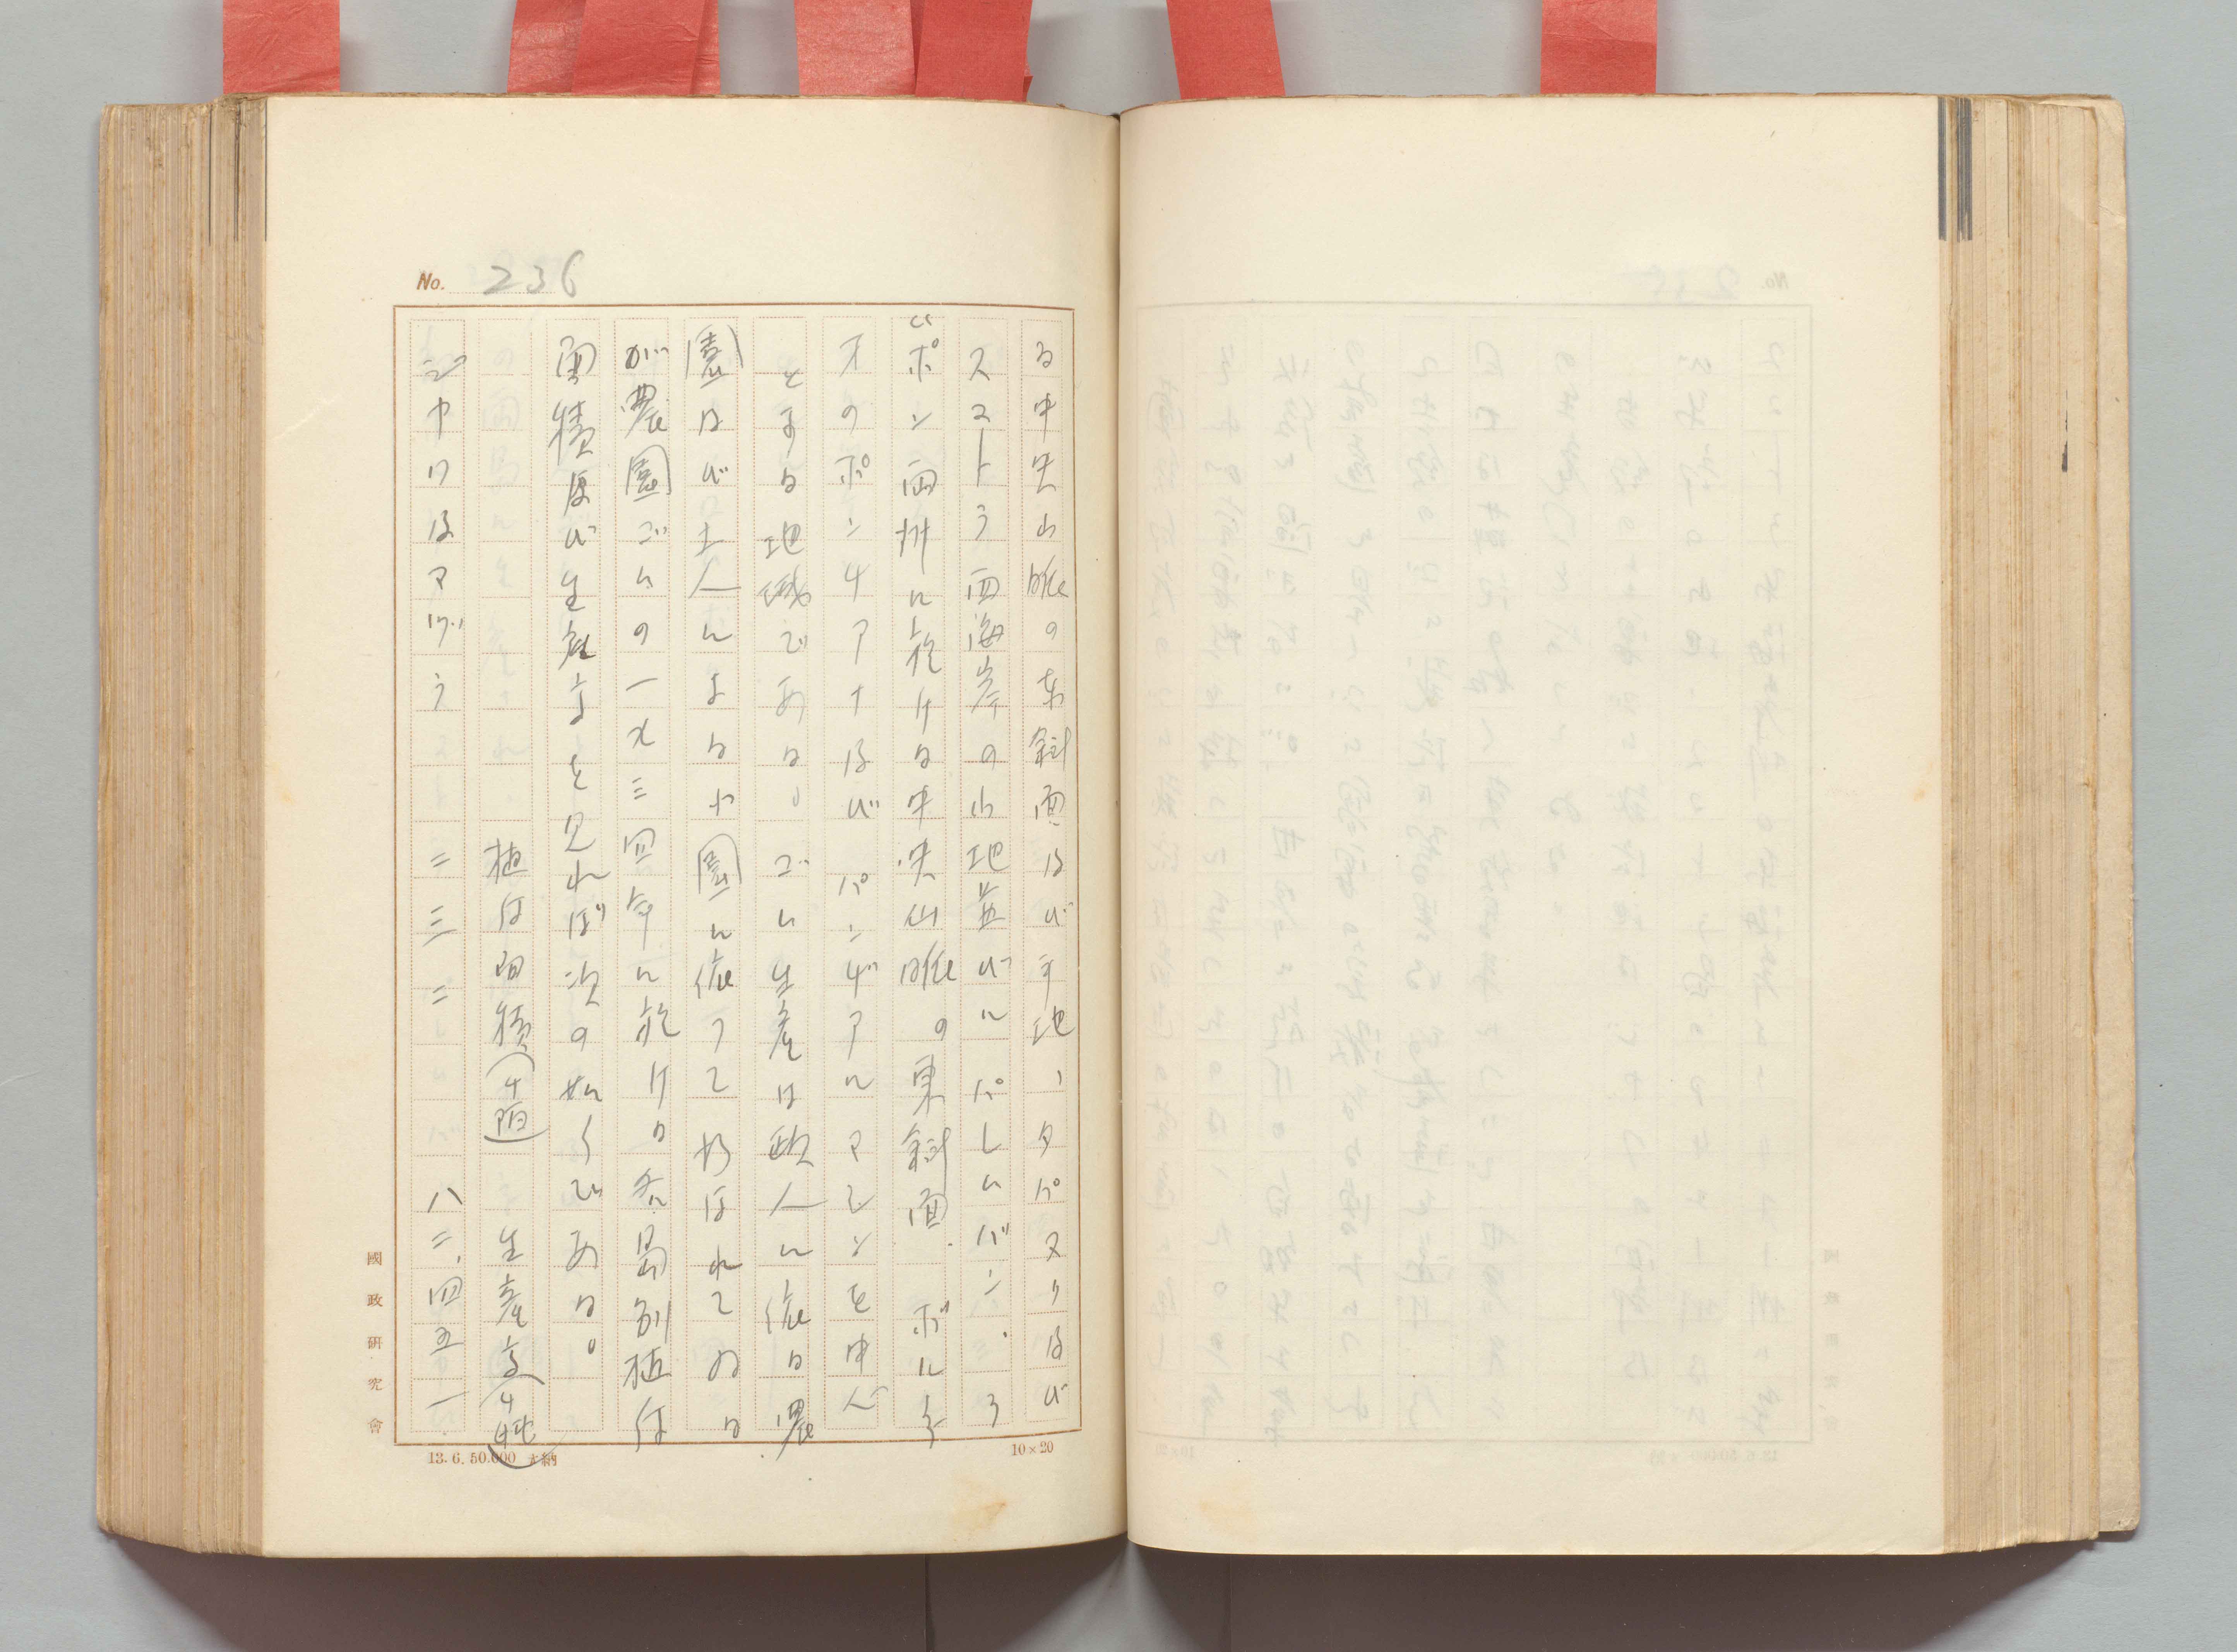 No. 236
る中央山脈の東斜面及び平地、タパヌリ及び
スマトラ西海岸の山地並びにパレムバン、ラ
ムポン両州に於ける中央山脈の東斜面、ボルネ
オのポンチアナ及びバンヂアルマシンを中心
とする地域である。ゴム生産は欧人に依る農
園及び土人による小園に依つて行はれてゐる
が農園ゴムの一九三四年に於ける各島別植付
面積及び生産高を見れば次の如くである。
植付面積(千陌) 生産高(千瓲)
ジヤワ及マヅラ 二三二 八二、四五一
國政研究會
13.6.50.000 ナ納
10×20